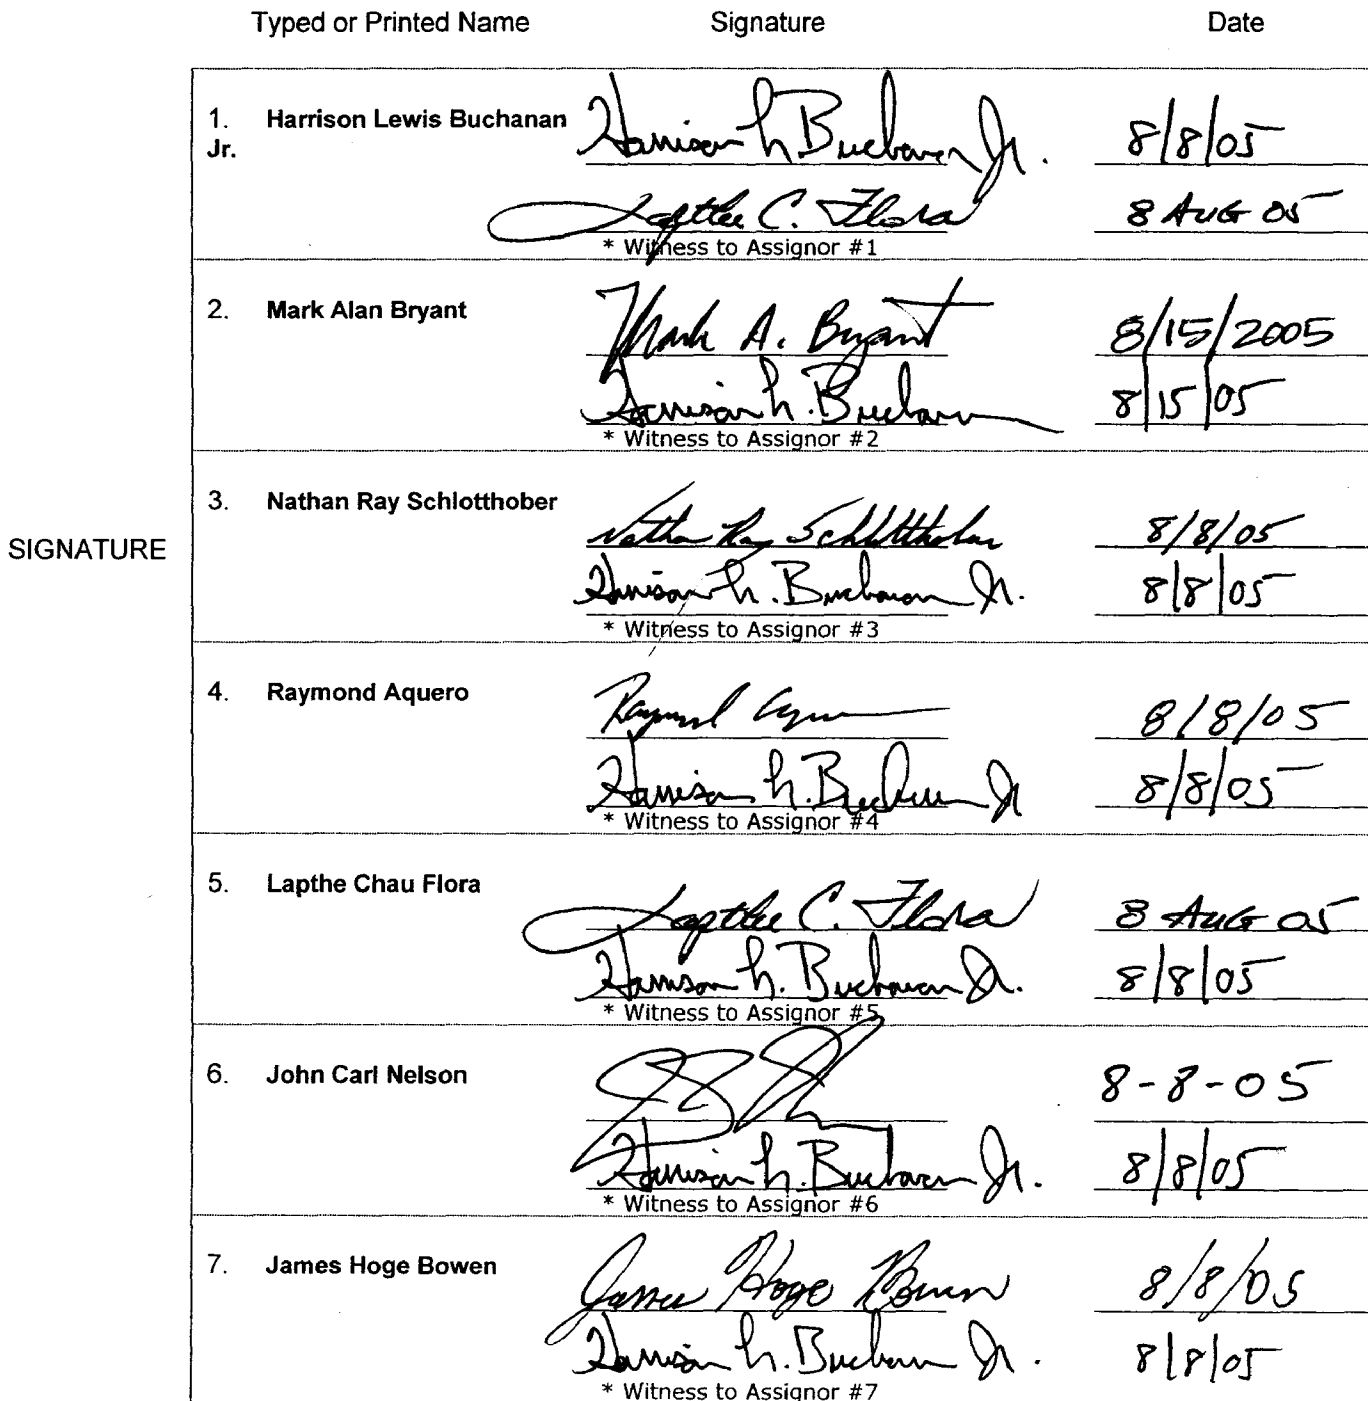 Typed or Printed Name Signature Date
1. Harrison Lewis Buchanan Harrison L. Buchanan Jr. 8/8/05
Jr.
Lapthe C. Flora 8 AUG 05
* Witness to Assignor #1
2. Mark Alan Bryant Mark A. Bryant 8/15/2005
Harrison L. Buchanan 8/15/05
* Witness to Assignor #2
3. Nathan Ray Schlotthober Nathan Ray Schlotthober 8/8/05
SIGNATURE
Harrison L. Buchanan Jr. 8/8/05
* Witness to Assignor #3
4. Raymond Aquero Raymond 8/8/05
Harrison L. Buchanan Jr 8/8/05
* Witness to Assignor #4
5. Lapthe Chau Flora Lapthe C. Flora 8 AUG 05
Harrison L. Buchanan Jr. 8/8/05
* Witness to Assignor #5
6. John Carl Nelson 8-8-05
Harrison L. Buchanan Jr. 8/8/05
* Witness to Assignor #6
7. James Hoge Bowen James Hoge Bowen 8/8/05
Harrison L. Buchanan Jr. 8/8/05
* Witness to Assignor #7